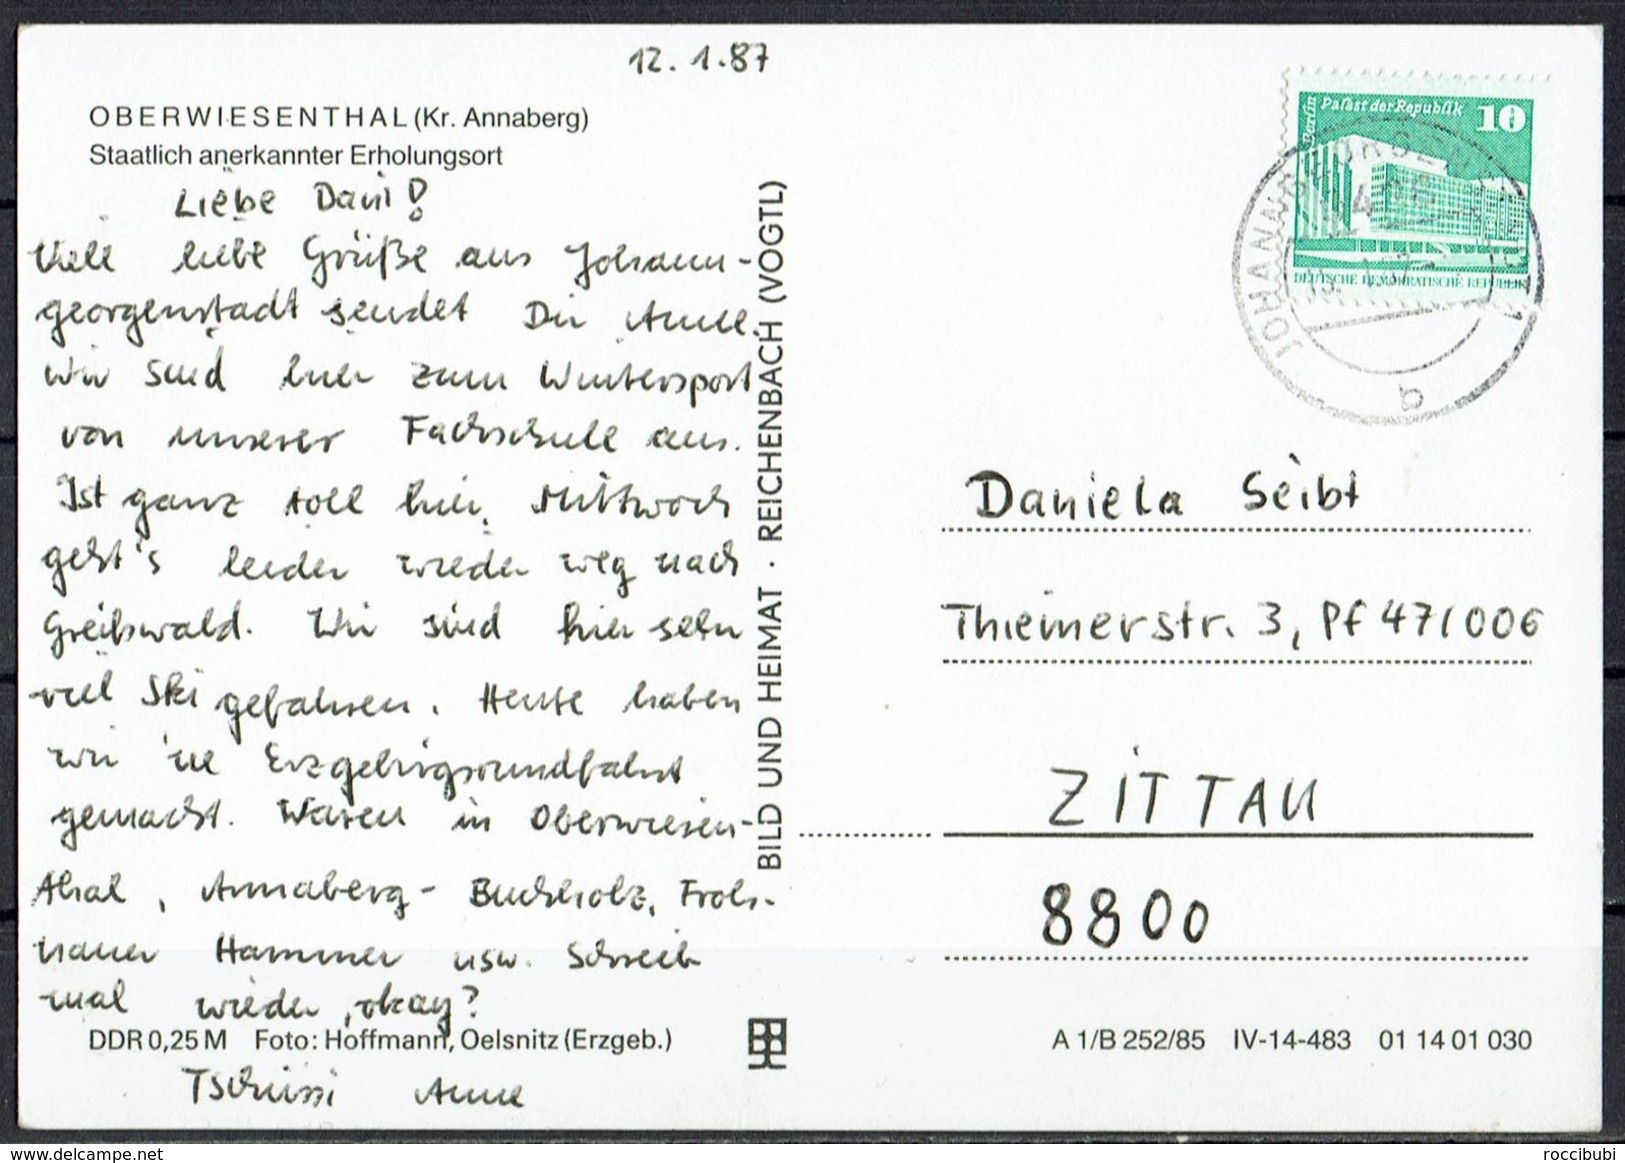 12.1.87
OBERWIESENTHAL (Kr. Annaberg)
Staatlich anerkannter Erholungsort
Liebe Dani!
Viele liebe Grüße aus Johann-
georgenstadt sendet Dir Anne.
Wir sind hier zum Wintersport
von unserer Fachschule aus.
Ist ganz toll hier. Mittwoch
geht's leider wieder weg nach
Greifswald. Wir sind hier sehr
viel Ski gefahren. Heute haben
wir 'ne Erzgebirgsrundfahrt
gemacht. Waren in Oberwiesen-
thal, Annaberg-Buchholz, Froh-
nauer Hammer usw. Schreib
mal wieder, okay?
DDR 0,25 M Foto: Hoffmann, Oelsnitz (Erzgeb.)
Tschüssi Anne
BILD UND HEIMAT · REICHENBACH (VOGTL)
Berlin
Palast der Republik 10
DEUTSCHE DEMOKRATISCHE REPUBLIK
b
Daniela Seibt
Theimerstr. 3, Pf 471006
ZITTAU
8800
A 1/B 252/85 IV-14-483 01 14 01 030
delcampe.net
roccibubi